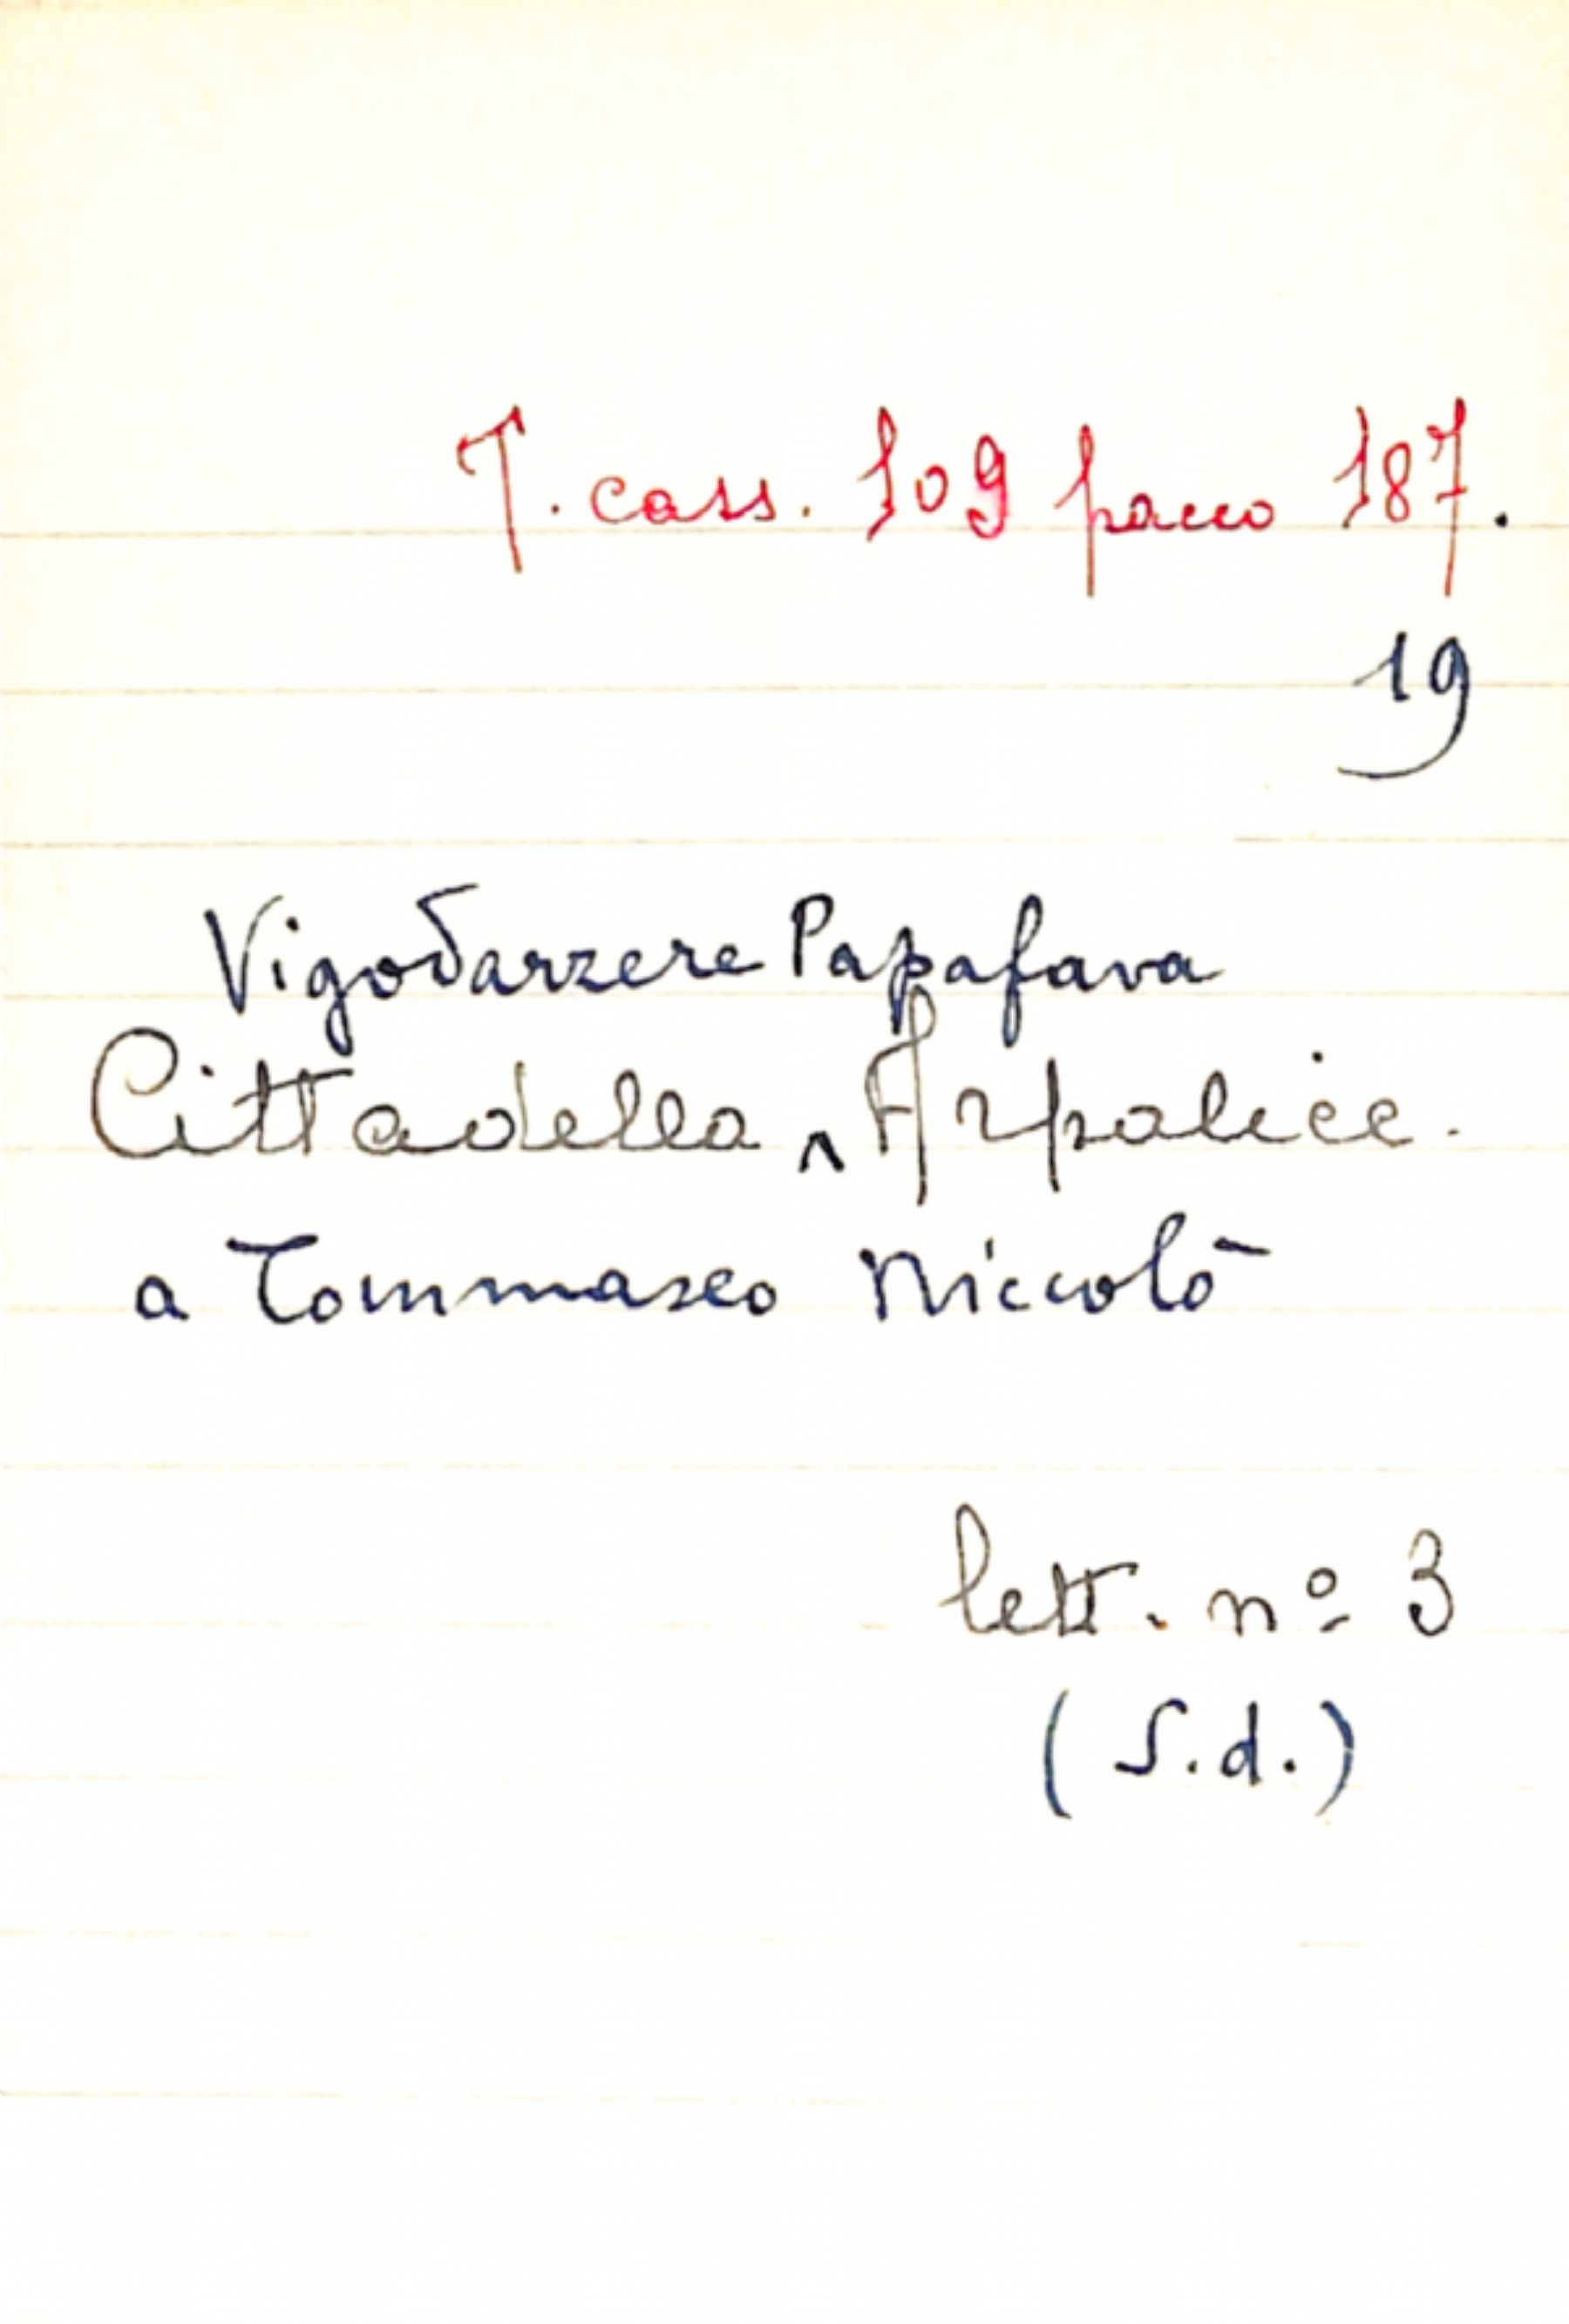 T. cass. 109 pacco 187.
19
Vigodarzere Papafava
Cittadella ^ Arpalice.
a Tommaseo Niccolò
lett. nº 3
(S.d.)